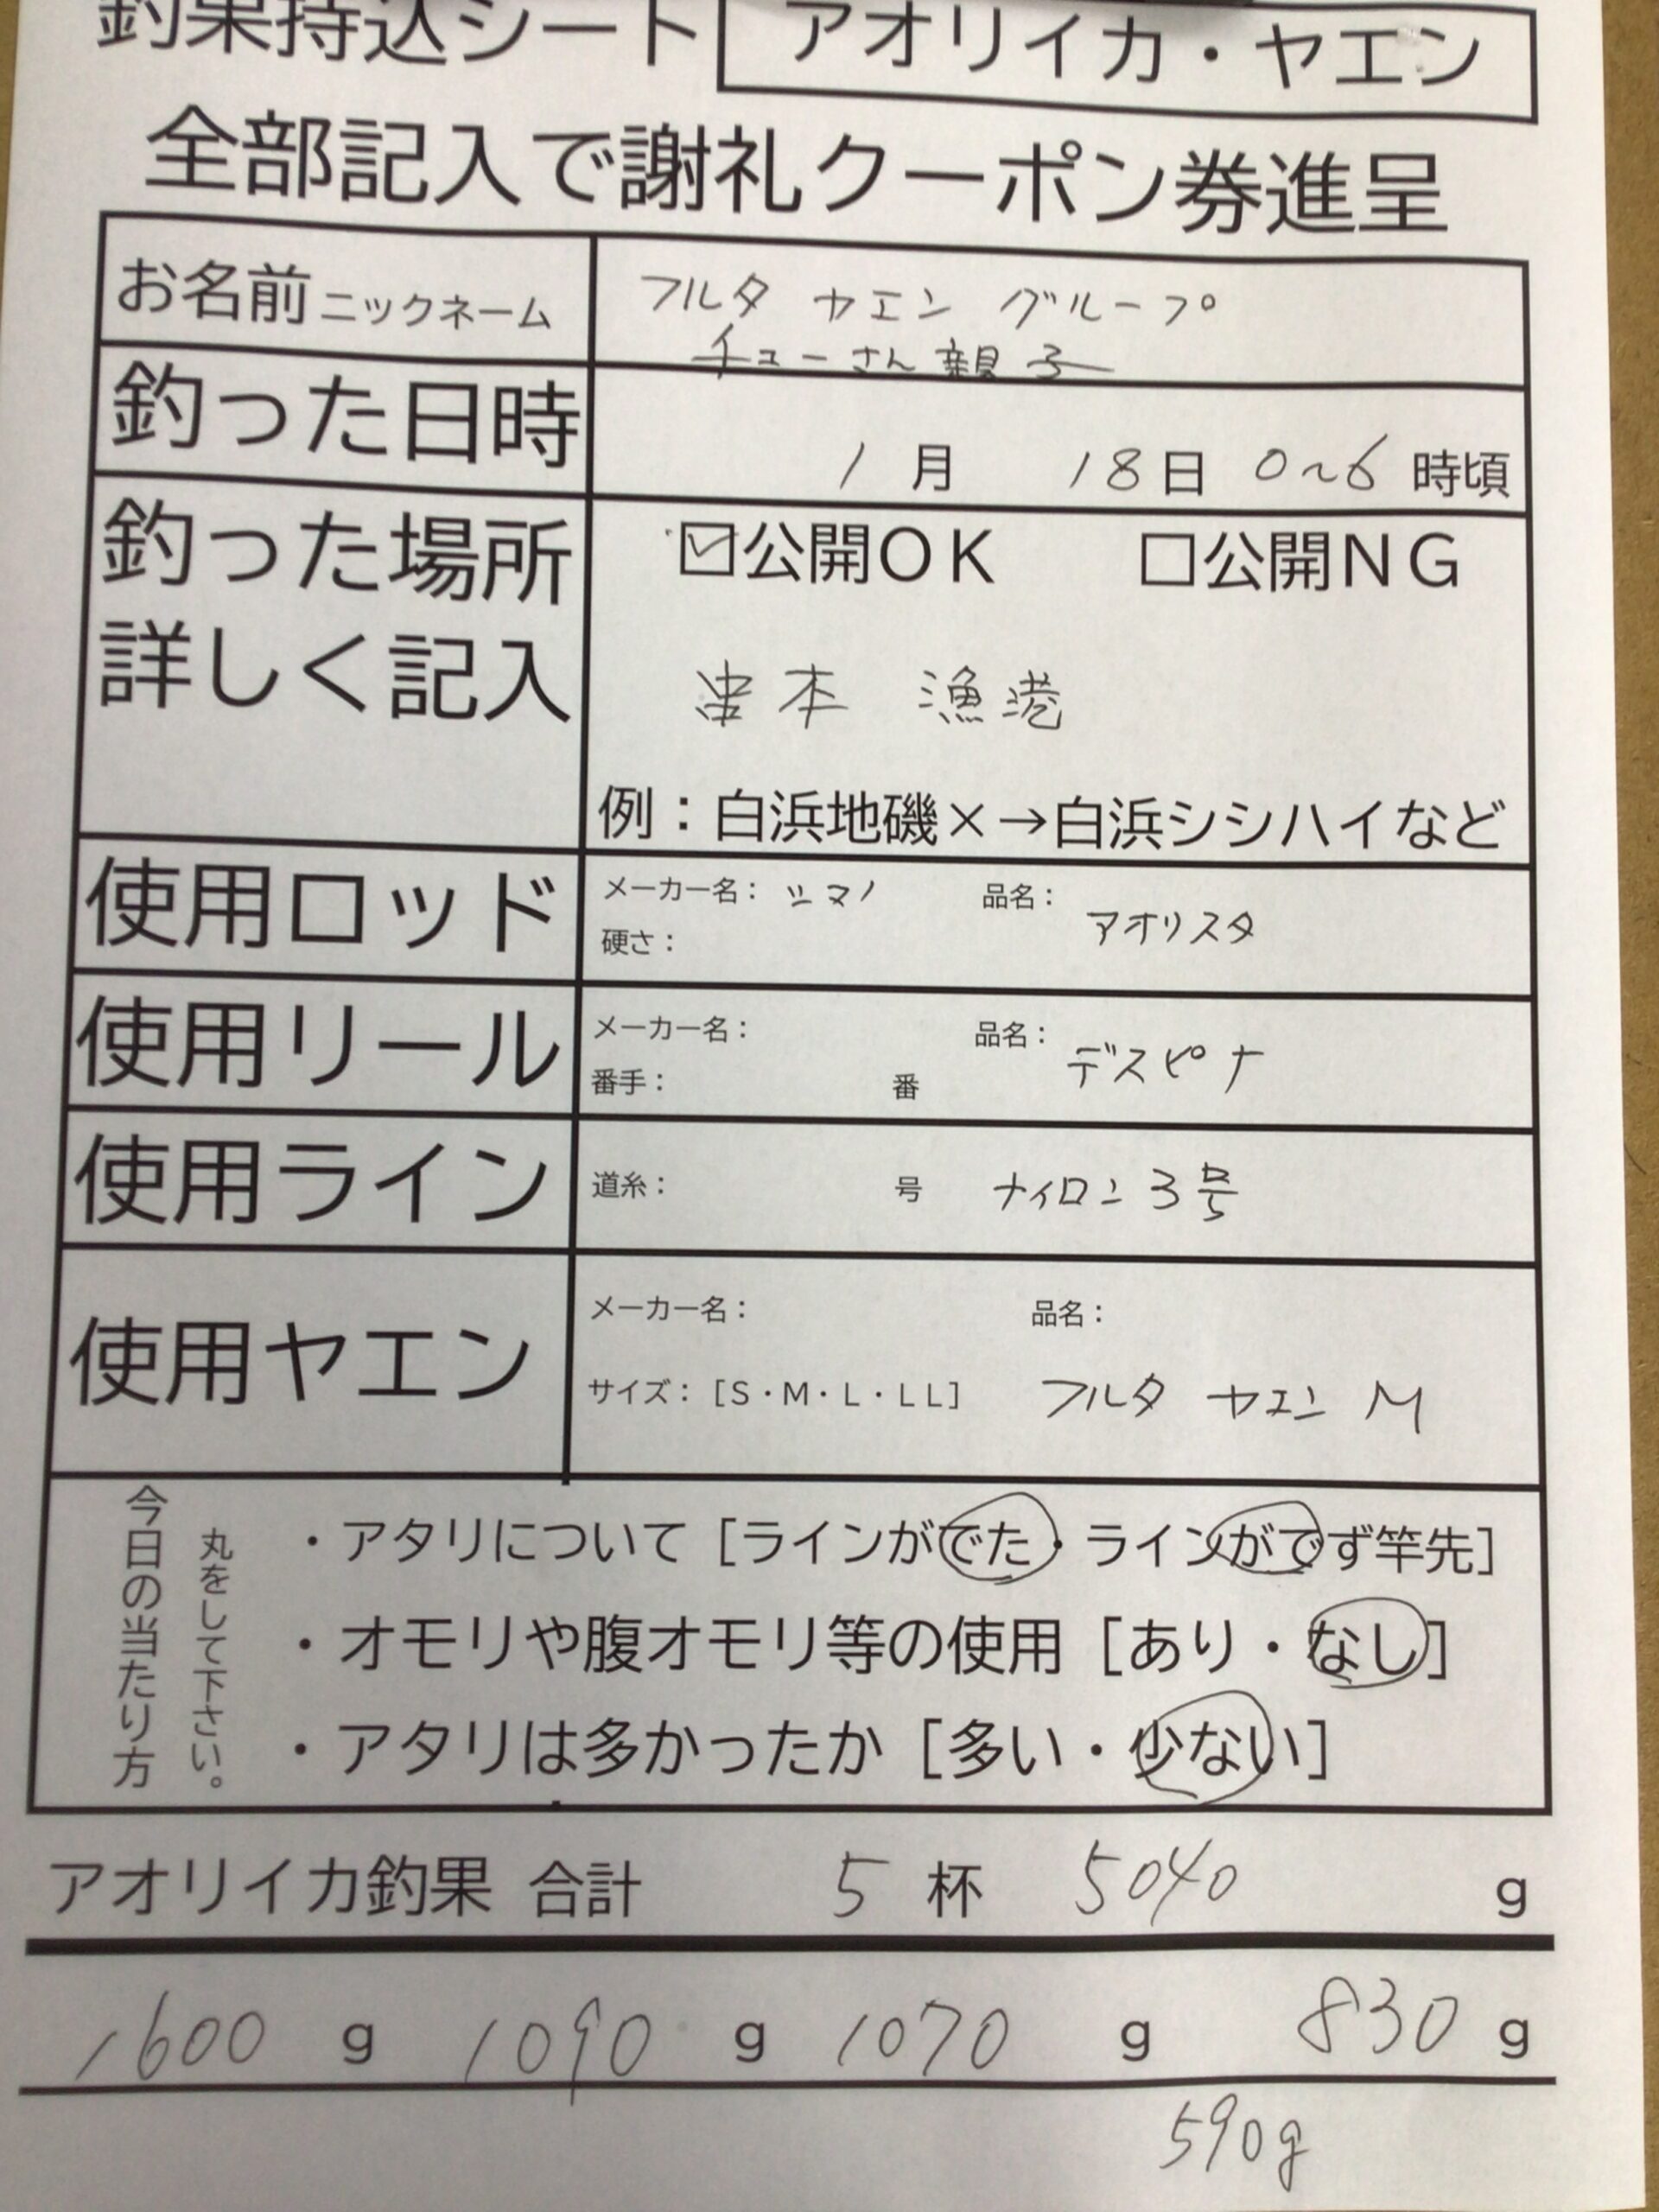 釣果持込シート アオリイカ・ヤエン
全部記入で謝礼クーポン券進呈
お名前 ニックネーム フルタ ヤエン グループ
チューさん親子
釣った日時 1月 18日 0~6 時頃
釣った場所 ☑公開OK □公開NG
詳しく記入 串本 漁港
例：白浜地磯×→白浜シシハイなど
使用ロッド メーカー名：シマノ 品名：アオリスタ
硬さ：
使用リール メーカー名： 品名：デスピナ
番手： 番
使用ライン 道糸： 号 ナイロン3号
使用ヤエン メーカー名： 品名：
サイズ：[S・M・L・LL] フルタ ヤエン M
今日の当たり方
丸をして下さい。
・アタリについて [ラインがでた・ラインがでず竿先]
・オモリや腹オモリ等の使用 [あり・なし]
・アタリは多かったか [多い・少ない]
アオリイカ釣果 合計 5 杯 5040 g
1600 g 1090 g 1070 g 830 g
590g